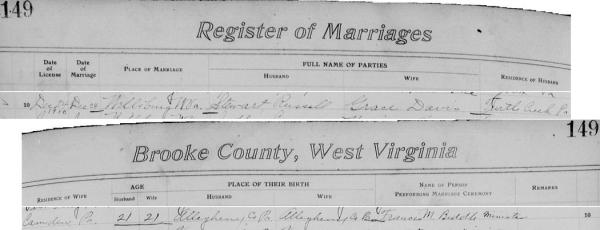 149
Register of Marriages
Date of License
Date of Marriage
PLACE OF MARRIAGE
FULL NAME OF PARTIES
HUSBAND
WIFE
RESIDENCE OF HUSBAND
10 Dec 20 1910 Dec 20 Wellsburg W.Va. Stewart Russell Grace Davis Turtle Creek Pa
149
Brooke County, West Virginia
RESIDENCE OF WIFE
AGE
Husband
Wife
PLACE OF THEIR BIRTH
HUSBAND
WIFE
NAME OF PERSON PERFORMING MARRIAGE CEREMONY
REMARKS
Camden Pa. 21 21 Allegheny Co Pa. Allegheny Co Pa Francis M. Minister 10